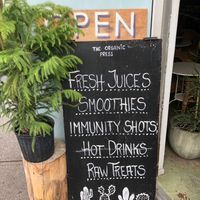 OPEN
THE ORGANIC
PRESS
FRESH JUICES
SMOOTHIES
IMMUNITY SHOTS
HOT DRINKS
RAW TREATS